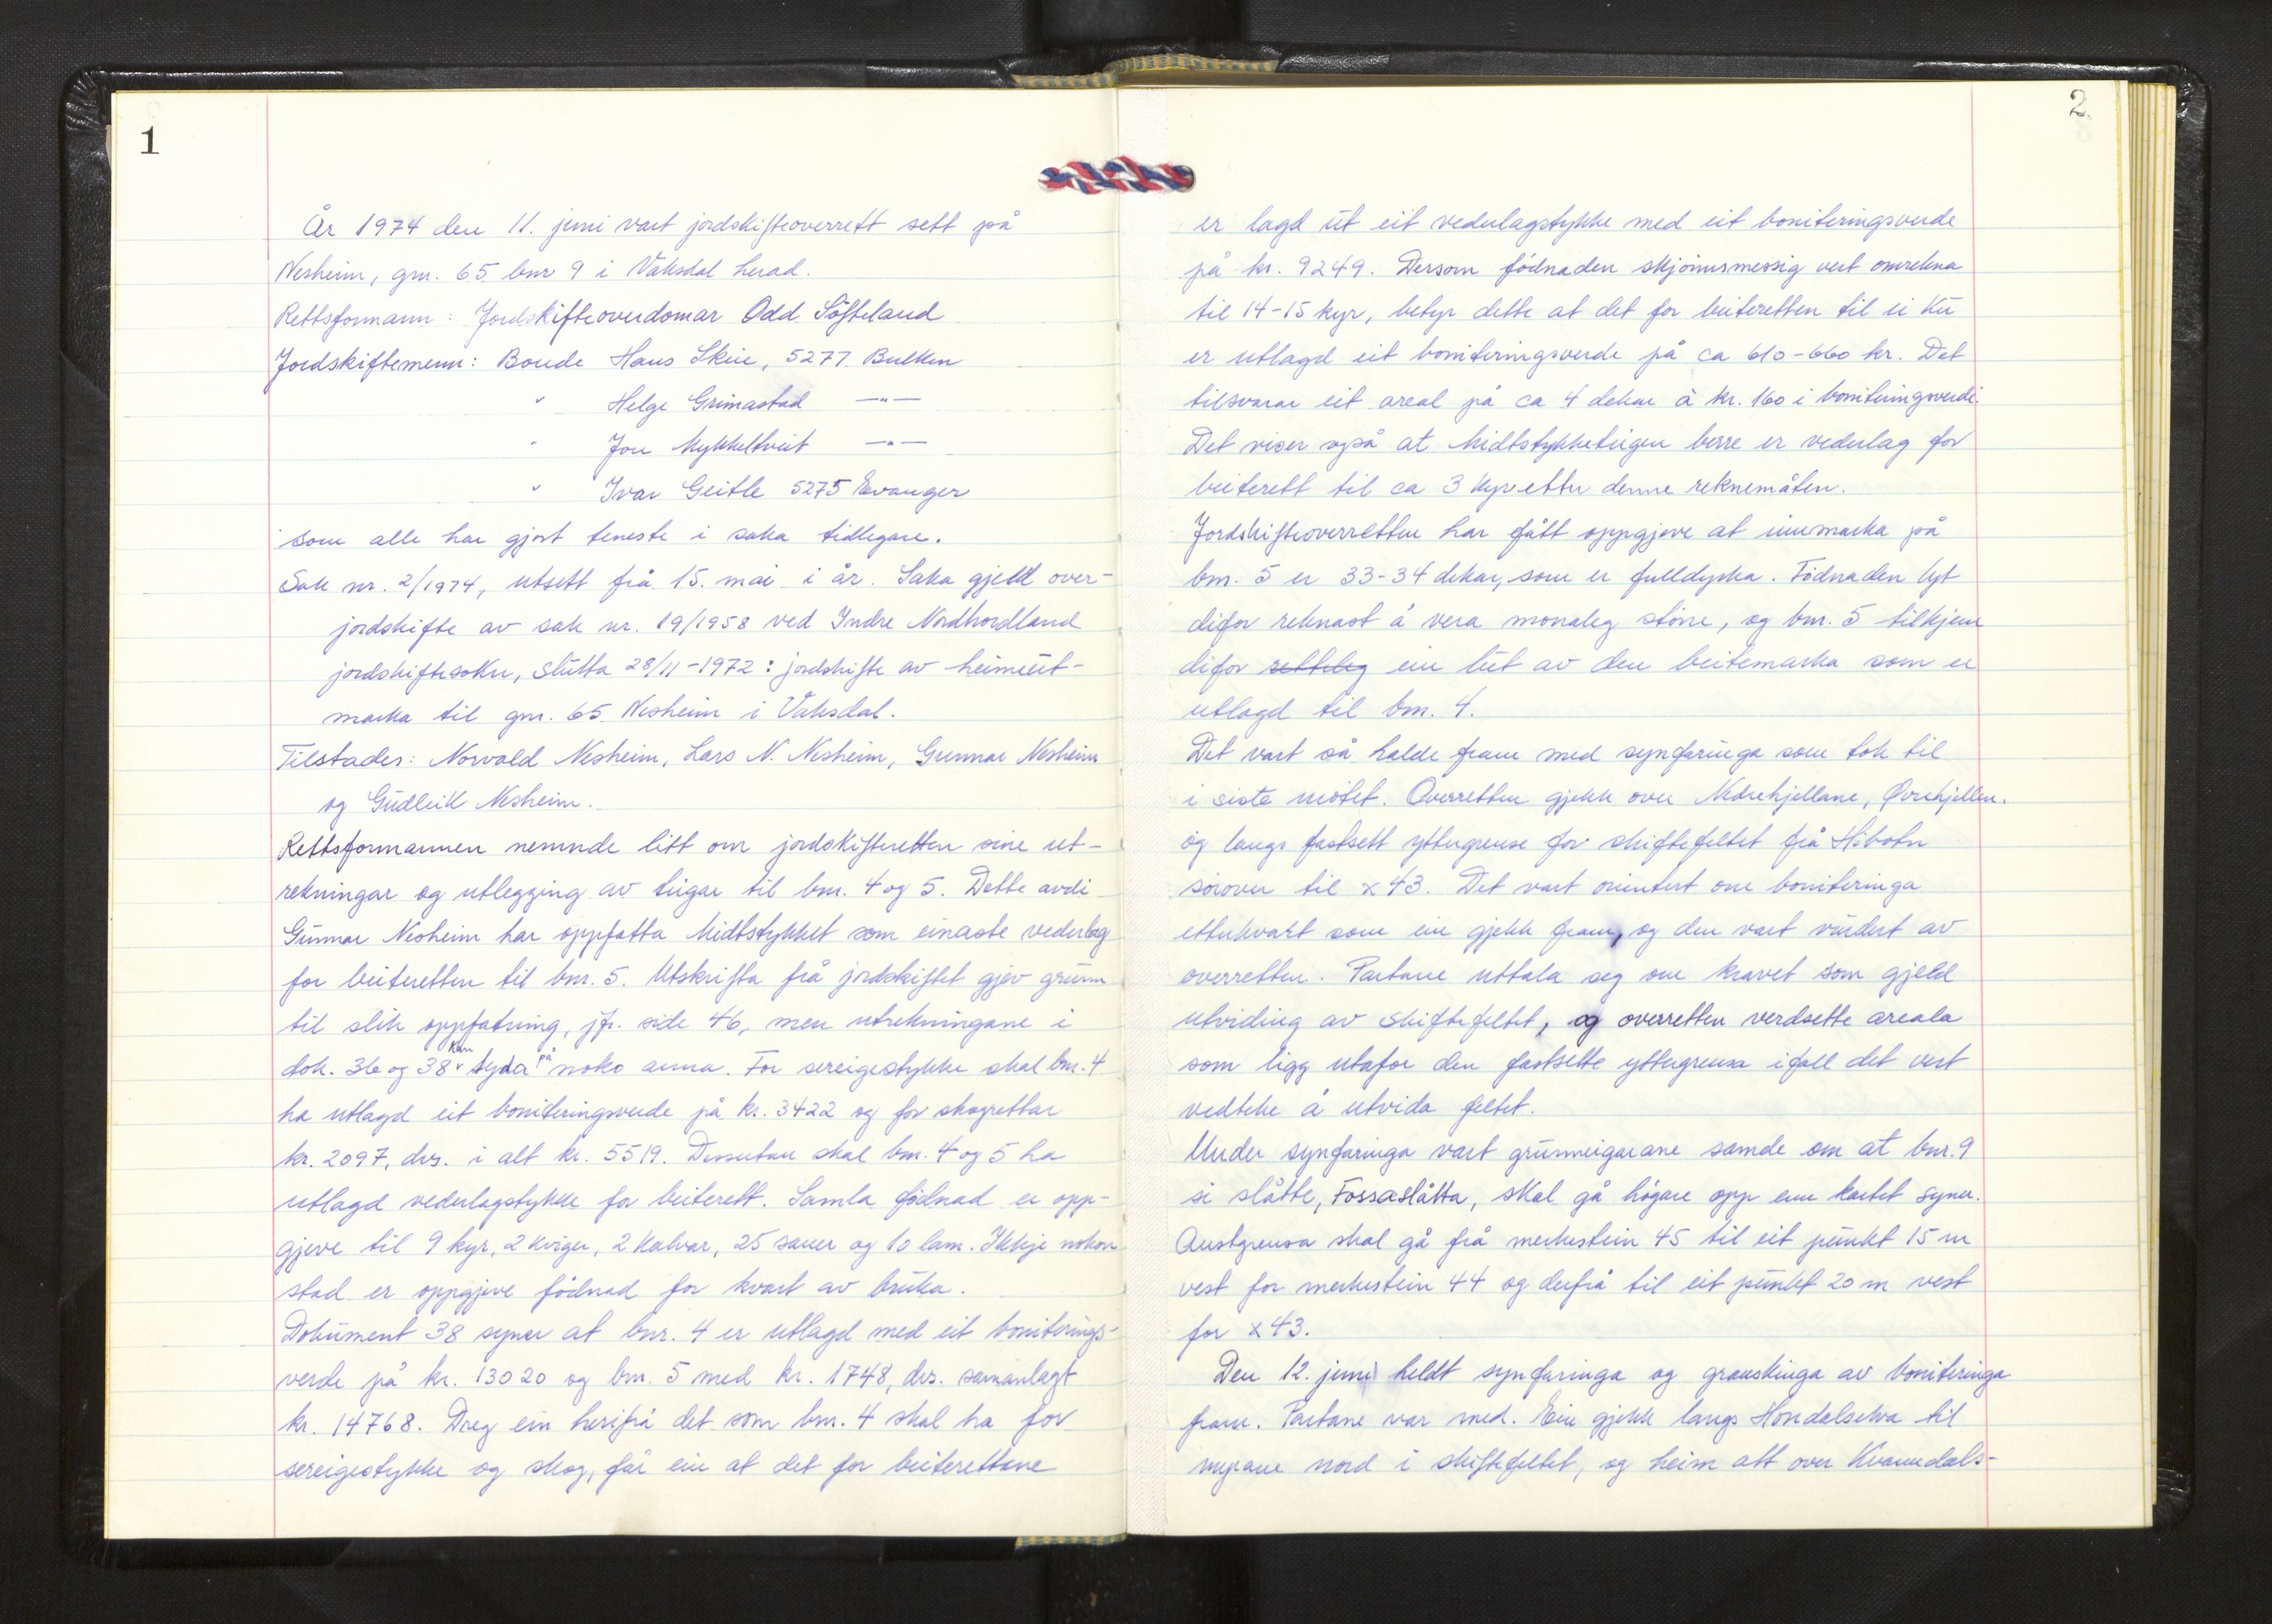 1
År 1974 den 11. juni vart jordskifteoverrett sett på
Nesheim, gnr. 65 bnr 9 i Vaksdal herad.
Rettsformann: Jordskifteoverdomar Odd Söfteland
Jordskiftemenn: Bonde Hans Skeie, 5277 Bulken
" Helge Grimastad —"—
" Jon Mykkeltveit —"—
" Ivar Geitle 5275 Evanger
som alle har gjort teneste i saka tidlegare.
Sak nr. 2/1974, utsett frå 15. mai i år. Saka gjeld over-
jordskifte av sak nr. 19/1958 ved Indre Nordhordland
jordskiftesokn, slutta 28/11-1972: jordskifte av heimeut-
marka til gnr. 65 Nesheim i Vaksdal.
Tilstades: Norvald Nesheim, Lars N. Nesheim, Gunnar Nesheim
og Gudleik Nesheim.
Rettsformannen nemnde litt om jordskifteretten sine ut-
rekningar og utlegging av teigar til bnr. 4 og 5. Dette avdi
Gunnar Nesheim har oppfatta Midtstykket som einaste vederlag
for beiteretten til bnr. 5. Utskrifta frå jordskiftet gjev grunn
til slik oppfatning, jfr. side 46, men utrekningane i
dok. 36 og 38 kan tyda på noko anna. For sereigestykke skal bnr. 4
ha utlagd eit boniteringsverde på kr. 3422 og for skogrettar
kr. 2097, dvs. i alt kr. 5519. Dessutan skal bnr. 4 og 5 ha
utlagd vederlagstykke for beiterett. Samla födnad er opp-
gjeve til 9 kyr, 2 kviger, 2 kalvar, 25 sauer og 10 lam. Ikkje nokon
stad er oppgjeve födnad for kvart av bruka.
Dokument 38 syner at bnr. 4 er utlagd med eit boniterings-
verde på kr. 13020 og bnr. 5 med kr. 1748, dvs. samanlagt
kr. 14768. Dreg ein herifrå det som bnr. 4 skal ha for
sereigestykke og skog, får ein at det for beiterettane
2
er lagd ut eit vederlagstykke med eit boniteringsverde
på kr. 9249. Dersom födnaden skjönnsmessig vert omrekna
til 14-15 kyr, betyr dette at det for beiteretten til ei ku
er utlagd eit boniteringsverde på ca 610-660 kr. Det
tilsvarar eit areal på ca 4 dekar à kr. 160 i boniteringsverdi.
Det viser også at Midtstykketeigen berre er vederlag for
beiterett til ca 3 kyr etter denne reknemåten.
Jordskifteoverretten har fått oppgjeve at innmarka på
bnr. 5 er 33-34 dekar, som er fulldyrka. Födnaden lyt
difor reknast å vera monaleg större, og bnr. 5 tilkjem
difor retteleg ein lut av den beitemarka som er
utlagd til bnr. 4.
Det vart så halde fram med synfaringa som tok til
i siste mötet. Overretten gjekk over Nedrehjellane, Øvrehjellen.
og langs fastsett yttergrense for skiftefeltet frå Hibotn
sörover til x 43. Det vart orientert om boniteringa
etterkvart som ein gjekk fram, og den vart vurdert av
overretten. Partane uttala seg om kravet som gjeld
utviding av skiftefeltet, og overretten verdsette areala
som ligg utafor den fastsette yttergrensa ifall det vert
vedteke å utvida feltet.
Under synfaringa vart grunneigarane samde om at bnr. 9
si slåtte, Fossaslåtta, skal gå högare opp enn kartet syner.
Austgrensa skal gå frå merkestein 45 til eit punkt 15 m
vest for merkestein 44 og derfrå til eit punkt 20 m vest
for x 43.
Den 12. juni heldt synfaringa og granskinga av boniteringa
fram. Partane var med. Ein gjekk langs Hondalselva til
myrane nord i skiftefeltet, og heim att over Kvanndals-